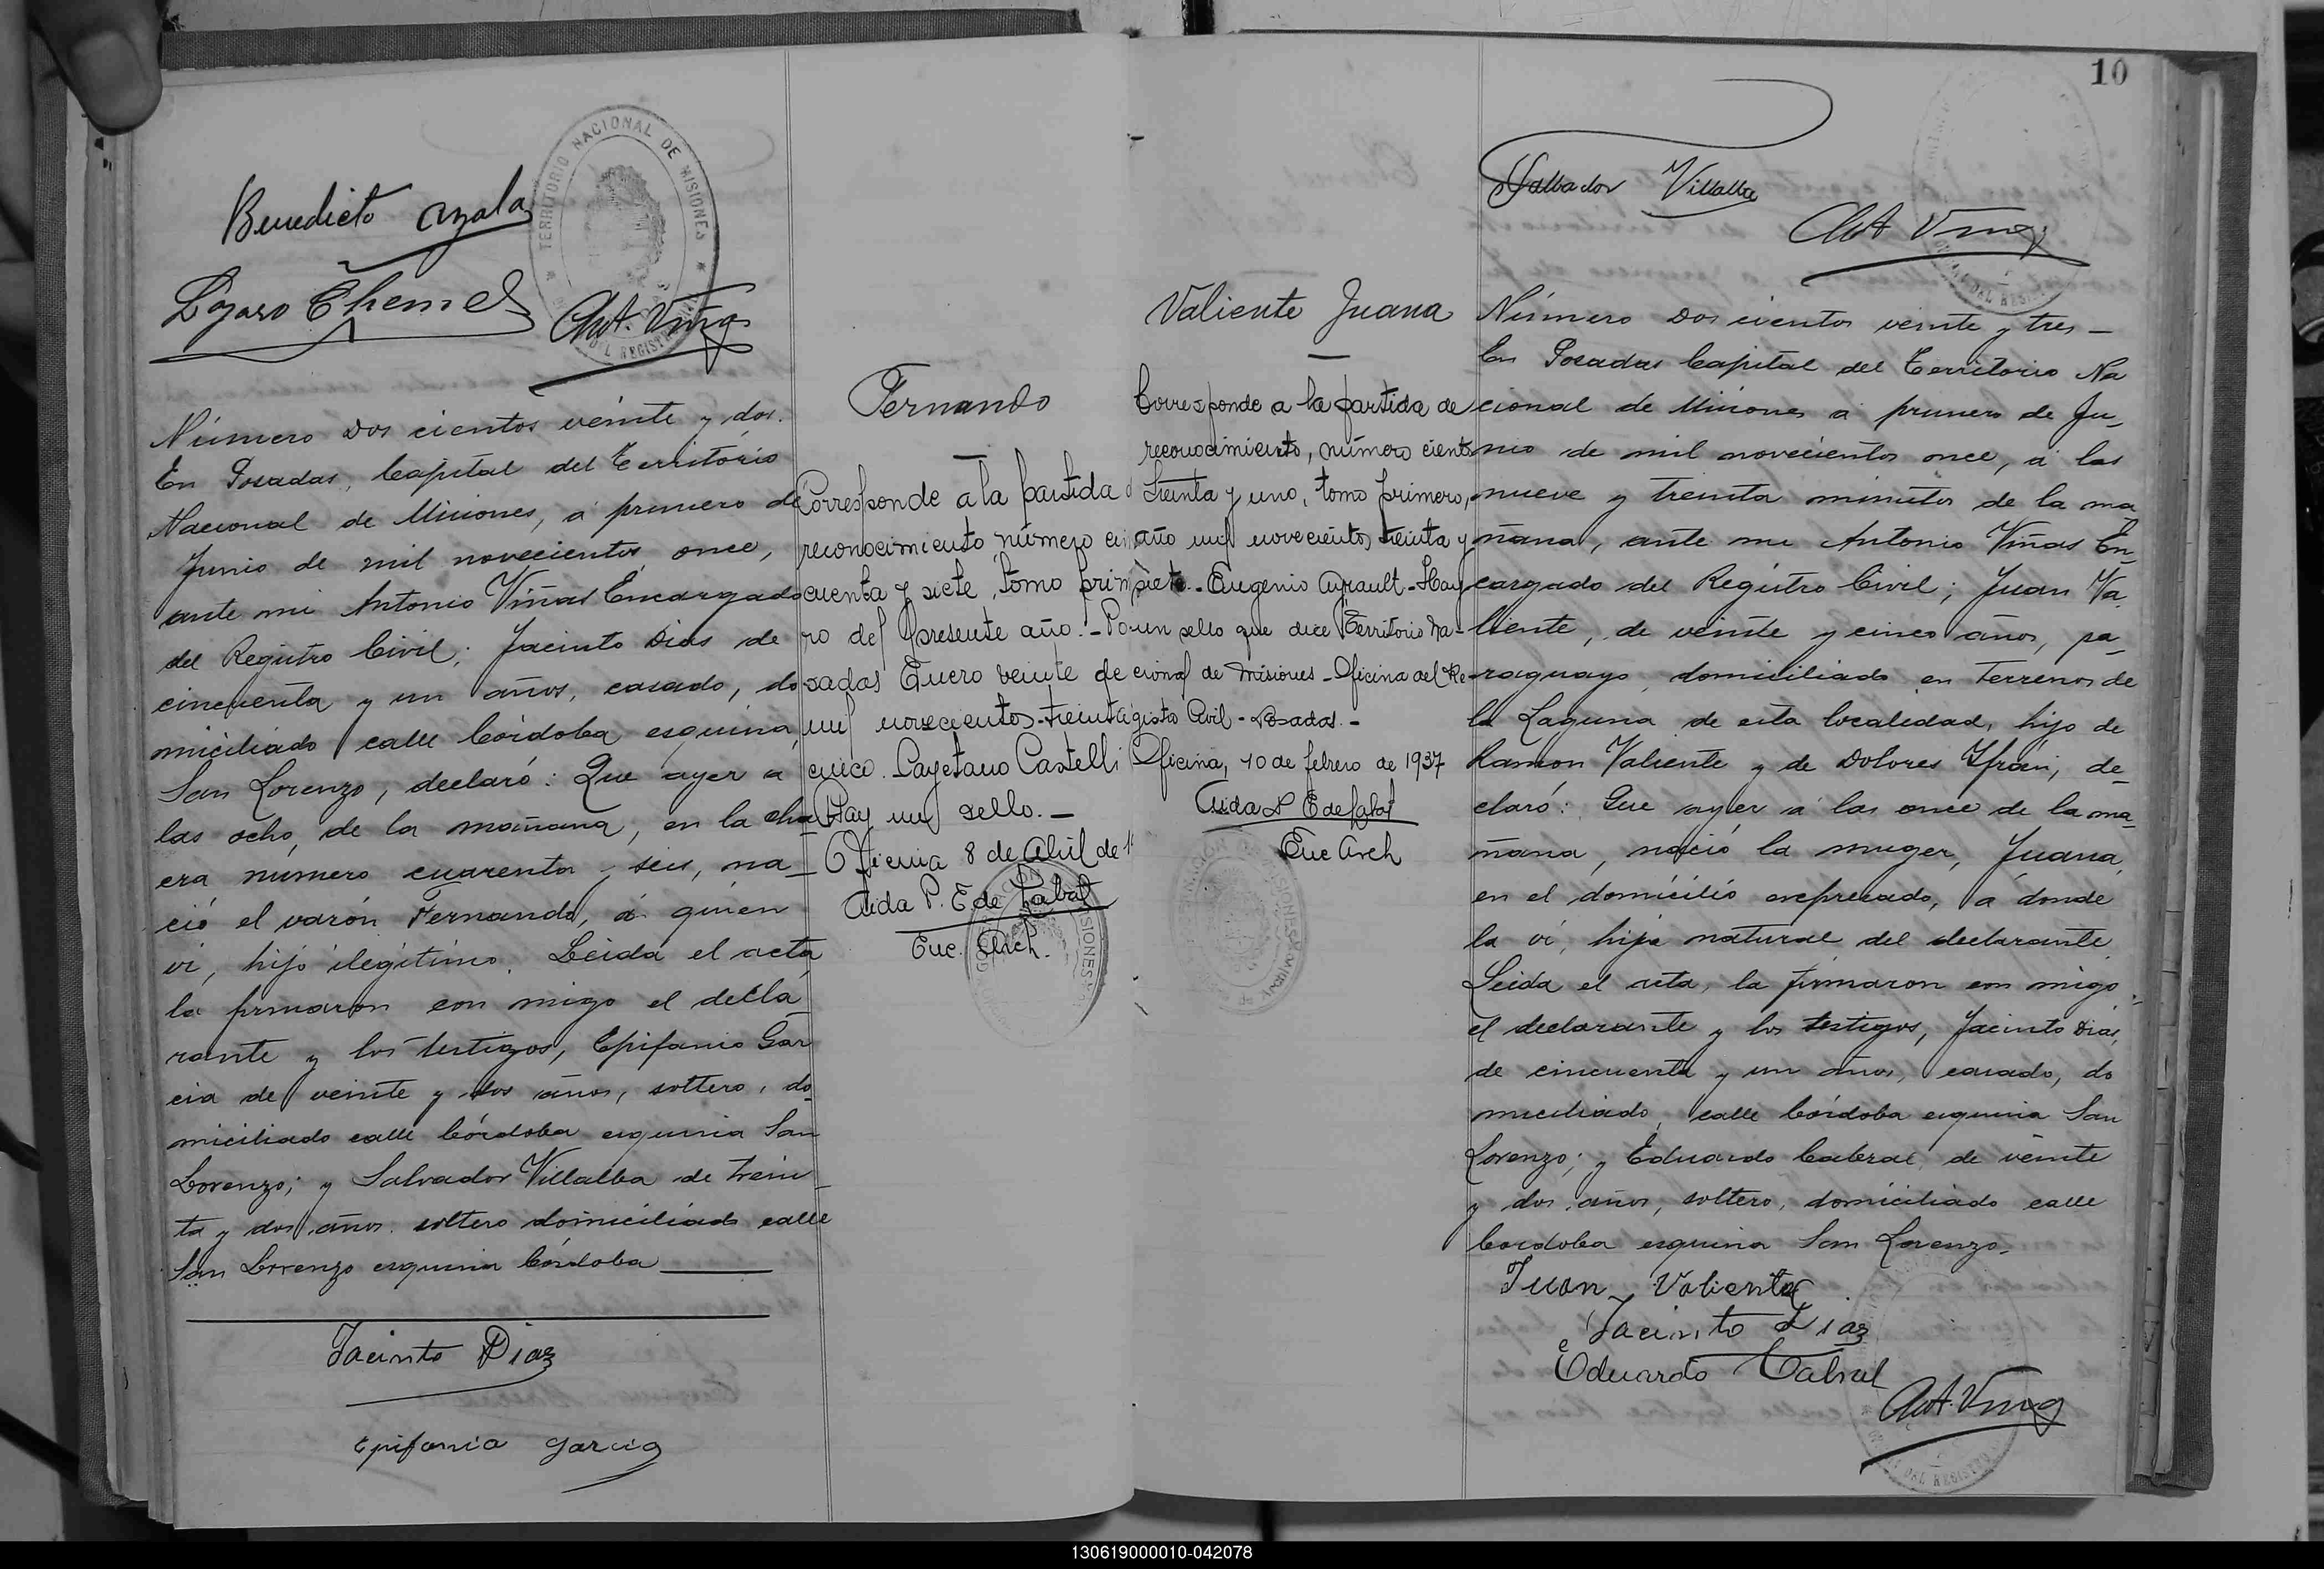 Benedicto Ayala
TERRITORIO NACIONAL DE MISIONES
DEL REGISTRO
Número dos cientos veinte y dos.
En Posadas, Capital del Territorio
Nacional de Misiones, á primero de
Junio de mil novecientos once,
ante mi Antonio Viñas Encargado
del Registro Civil; Jacinto Dias de
cincuenta y un años, casado, do
miciliado calle Córdoba esquina,
San Lorenzo, declaró: Que ayer a
las ocho, de la mañana, en la cha
cra número cuarenta y seis, na_
ció el varón Fernando, á quien
vi, hijo ilegítimo. Leida el acta
la firmaron con migo el decla
rante y los testigos, Epifanio Gar
cia de veinte y dos años, soltero, do_
miciliado calle Córdoba esquina San
Lorenzo; y Salvador Villalba de trein_
ta y dos años. soltero domiciliado calle
San Lorenzo esquina Córdoba
Jacinto Diaz
Epifanio Garcia
Fernando
Corresponde a la partida
reconocimiento número cin
cuenta y siete, tomo prim
ro del presente año. - Po
sadas Enero veinte de
mil novecientos treinta
cinco. Cayetano Castelli
Hay un sello. -
Oficina 8 de Abril de 1
Aida P. E de Labat
Enc. Arch.
MISIONES
Valiente Juana
Corresponde a la partida de
reconocimiento, número ciento
treinta y uno, tomo primero,
año mil novecientos treinta y
siete. - Eugenio Ayrault - Hay
un sello que dice Territorio Na-
cional de Misiones - Oficina del Re-
gistro Civil - Posadas. -
Oficina, 10 de febrero de 1937
Aida P E de Labat
Enc Arch
10
Salbador Villalba
Ant Viñas
Número dos cientos veinte y tres -
En Posadas Capital del Territorio Na
cional de Misiones á primero de Ju_
nio de mil novecientos once, á las
nueve y treinta minutos de la ma
ñana, ante mi Antonio Viñas En_
cargado del Registro Civil; Juan Va_
liente, de veinte y cinco años, pa_
raguayo, domiciliado en terrenos de
la Laguna de esta localidad, hijo de
Ramon Valiente y de Dolores Ifrán, de_
claró: Que ayer á las once de la ma_
ñana, nació la muger, Juana,
en el domicilio expresado, á donde
la vi, hija natural del declarante.
Leida el acta, la firmaron con migo
el declarante y los testigos, Jacinto Dias,
de cincuenta y un años, casado, do
miciliado, calle Córdoba esquina San
Lorenzo; y Eduardo Cabral, de veinte
y dos años, soltero, domiciliado calle
Cordoba esquina San Lorenzo.
Juan Valiente
Jacinto Diaz
Eduardo Cabral
Ant. Viñas
DEL REGISTRO
130619000010-042078